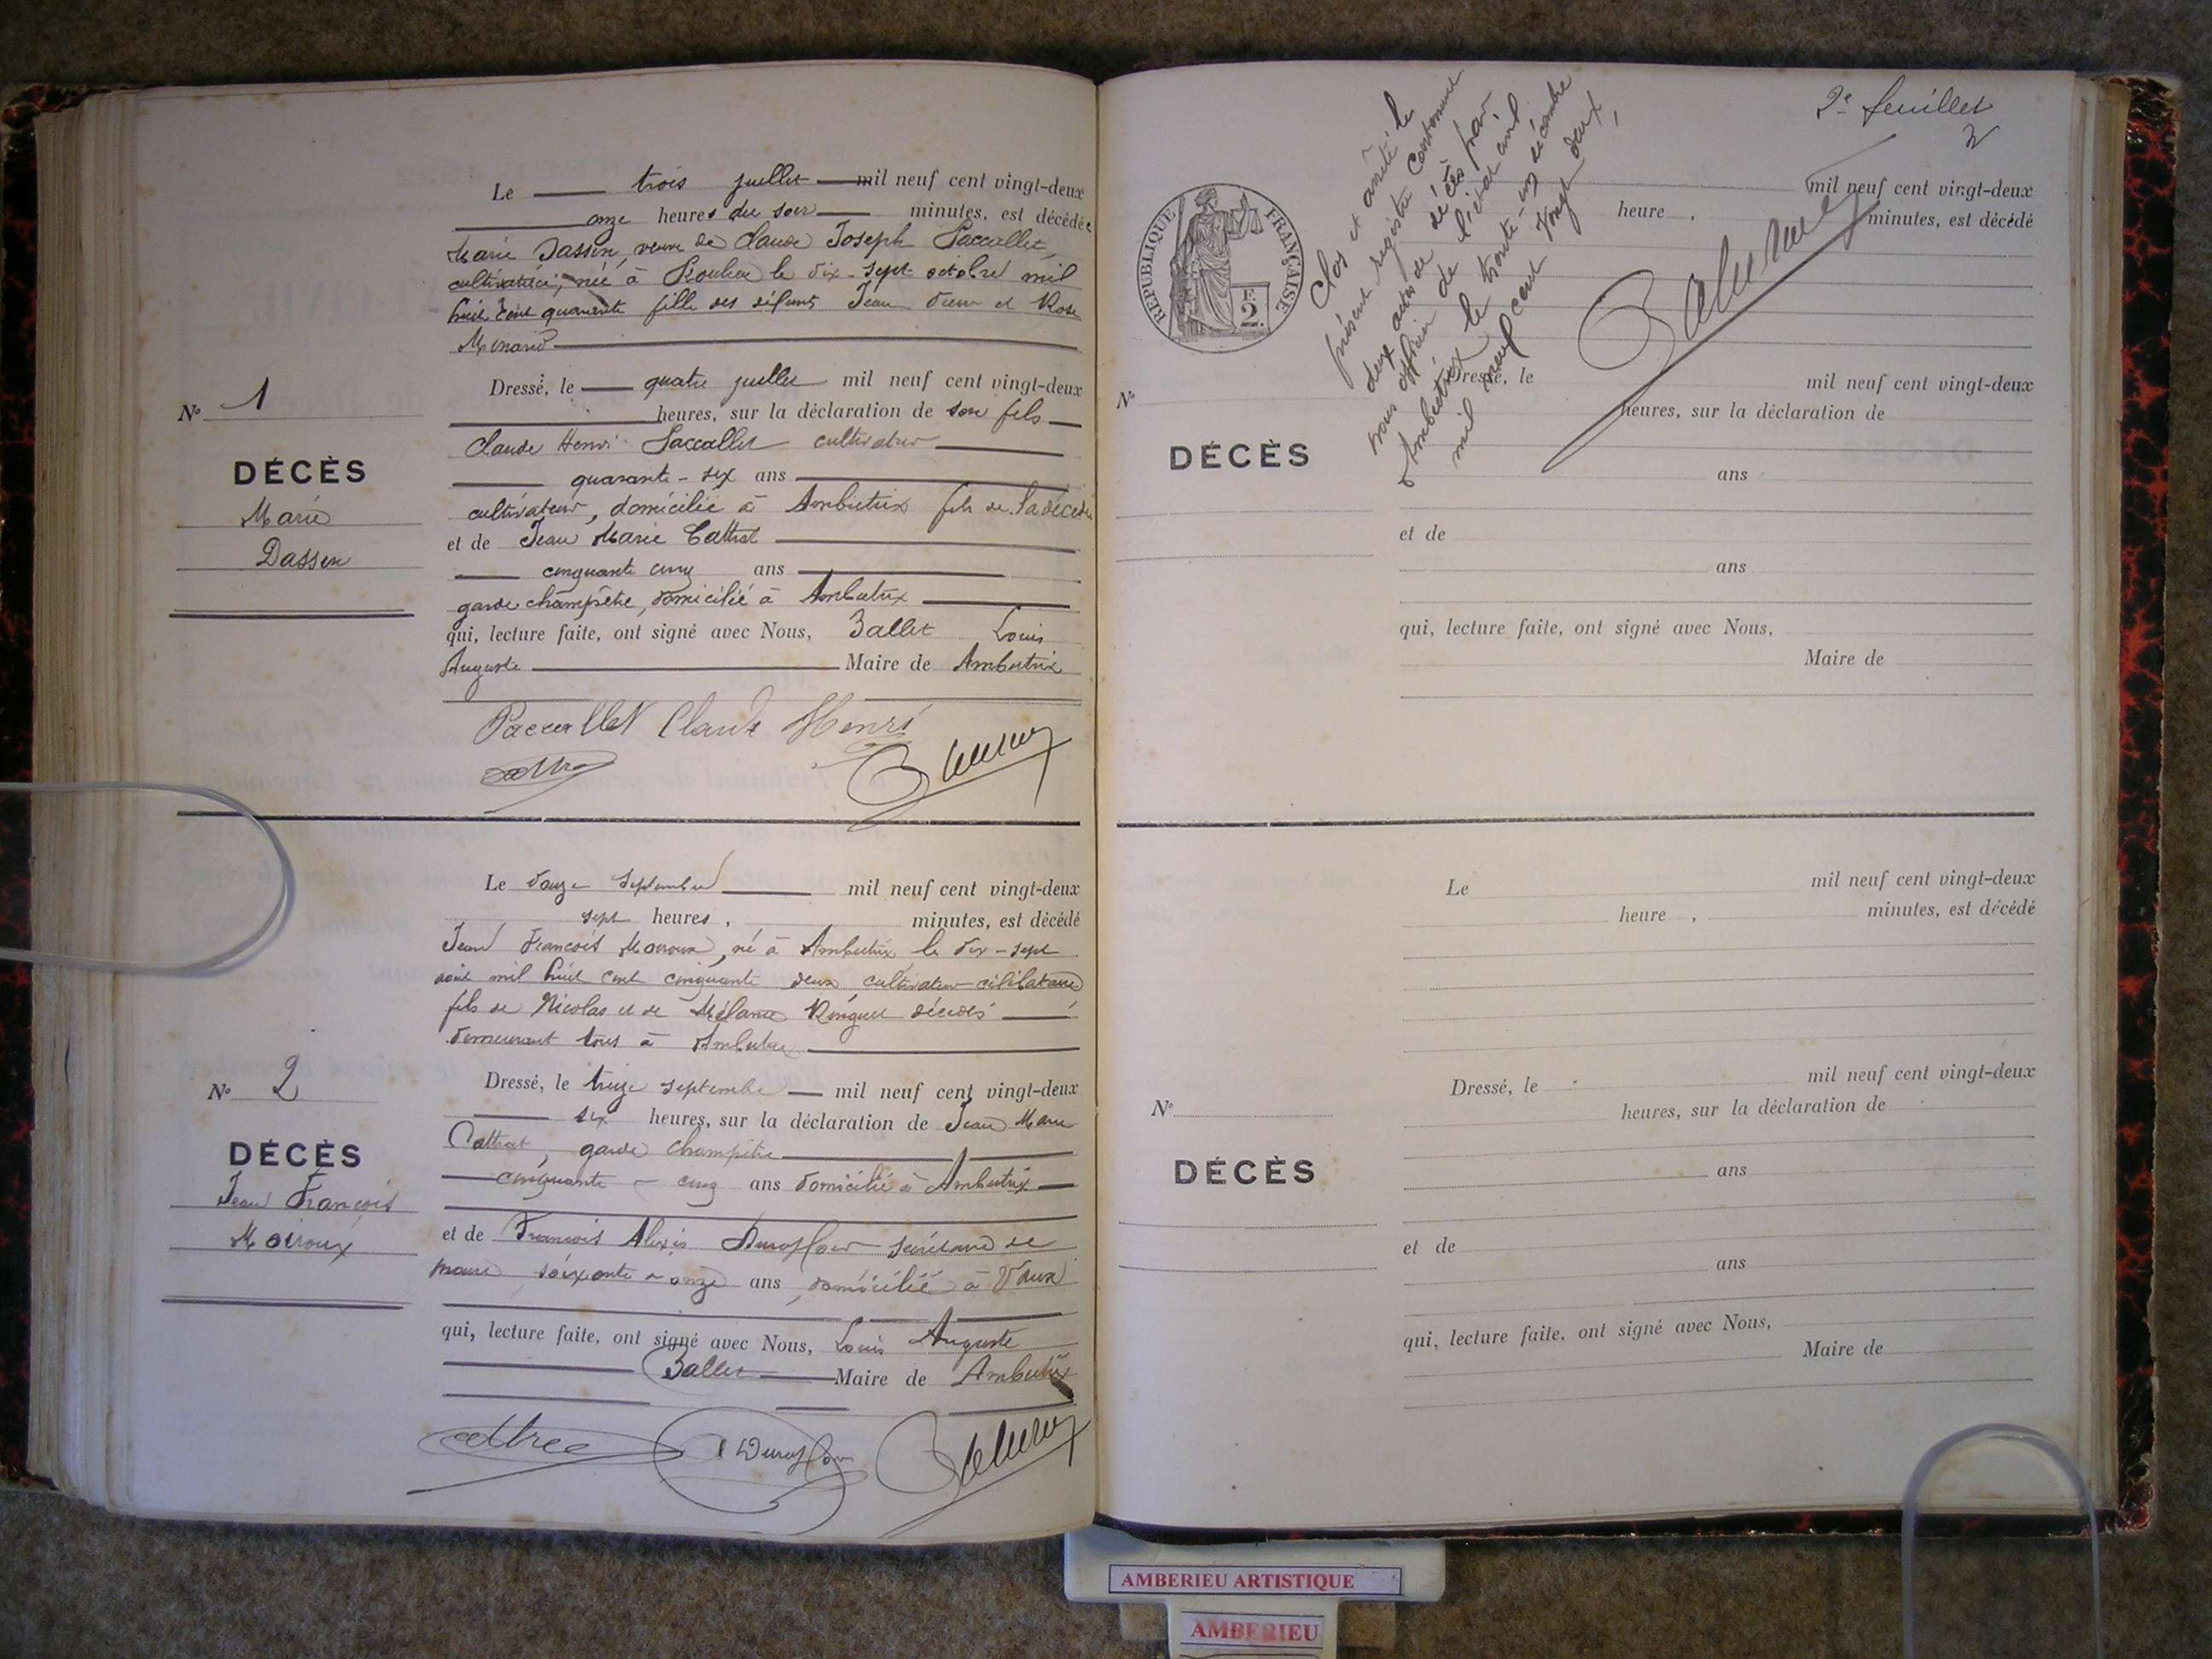 Le trois juillet mil neuf cent vingt-deux
onze heures du soir minutes, est décédée
Marie Dassin, veuve de Claude Joseph Paccallet,
cultivatrice, née à le dix-sept octobre mil
huit cent quarante fille des défunts Jean et Rose
Dressé, le quatre juillet mil neuf cent vingt-deux
heures, sur la déclaration de son fils
Claude Henri Paccallet cultivateur
quarante-six ans
cultivateur, domicilié à Ambutrix fils de la décédée
et de Jean Marie Cattrat
cinquante cinq ans
garde champêtre, domicilié à Ambutrix
qui, lecture faite, ont signé avec Nous, Ballet Louis
Auguste Maire de Ambutrix
Paccallet Claude Henri
No 1
DÉCÈS
Marie
Dassin
Le douze septembre mil neuf cent vingt-deux
sept heures, minutes, est décédé
Jean François Moiroux, né à Ambutrix le dix-sept
août mil huit cent cinquante deux cultivateur célibataire
fils de Nicolas et de Mélanie décédés
demeurant tous à Ambutrix
Dressé, le treize septembre mil neuf cent vingt-deux
six heures, sur la déclaration de Jean Marie
Cattrat, garde champêtre
cinquante-cinq ans domicilié à Ambutrix
et de François Alexis secrétaire de
mairie soixante-onze ans, domicilié à Vaux
qui, lecture faite, ont signé avec Nous, Louis Auguste
Ballet Maire de Ambutrix
No 2
DÉCÈS
Jean François
Moiroux
2e feuillet
2
RÉPUBLIQUE FRANÇAISE
2 F.
Clos et arrêté le
présent registre contenant
deux actes de décès par
nous officier de l'état civil
Ambutrix le trente-un décembre
mil neuf cent vingt deux,
mil neuf cent vingt-deux
heure , minutes, est décédé
Dressé, le mil neuf cent vingt-deux
heures, sur la déclaration de
No
DÉCÈS
ans
et de
ans
qui, lecture faite, ont signé avec Nous,
Maire de
Le mil neuf cent vingt-deux
heure , minutes, est décédé
Dressé, le mil neuf cent vingt-deux
No heures, sur la déclaration de
DÉCÈS
ans
et de
ans
qui, lecture faite, ont signé avec Nous,
Maire de
AMBERIEU ARTISTIQUE
AMBERIEU